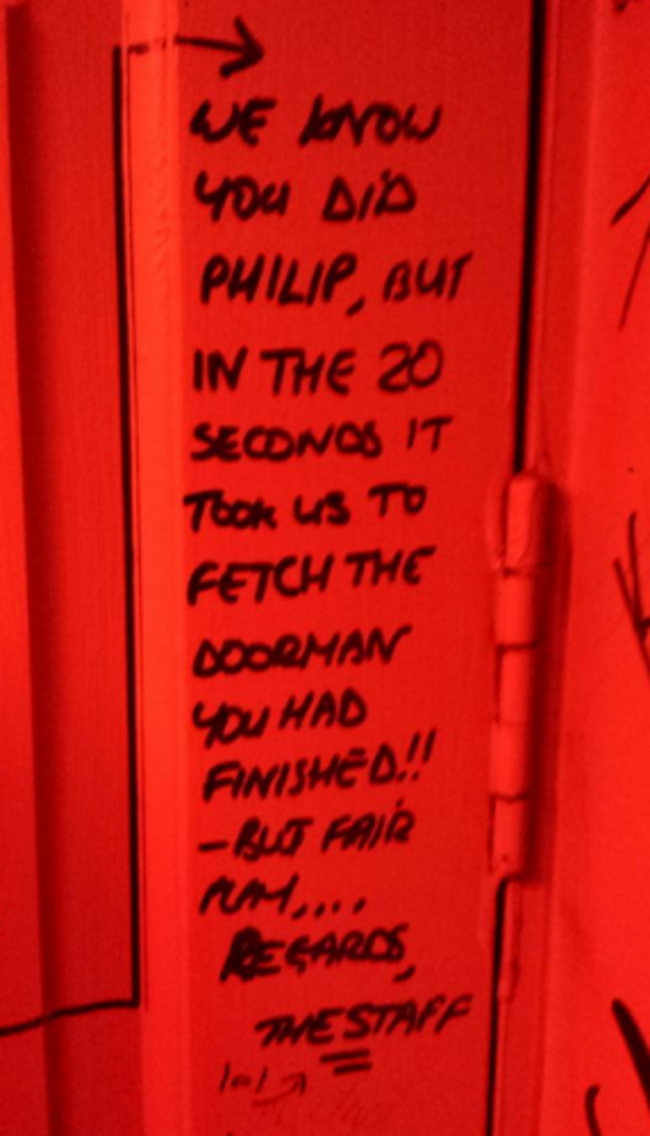 WE KNOW
YOU DID
PHILIP, BUT
IN THE 20
SECONDS IT
TOOK US TO
FETCH THE
DOORMAN
YOU HAD
FINISHED!!
-BUT FAIR
PLAY,...
REGARDS,
THE STAFF